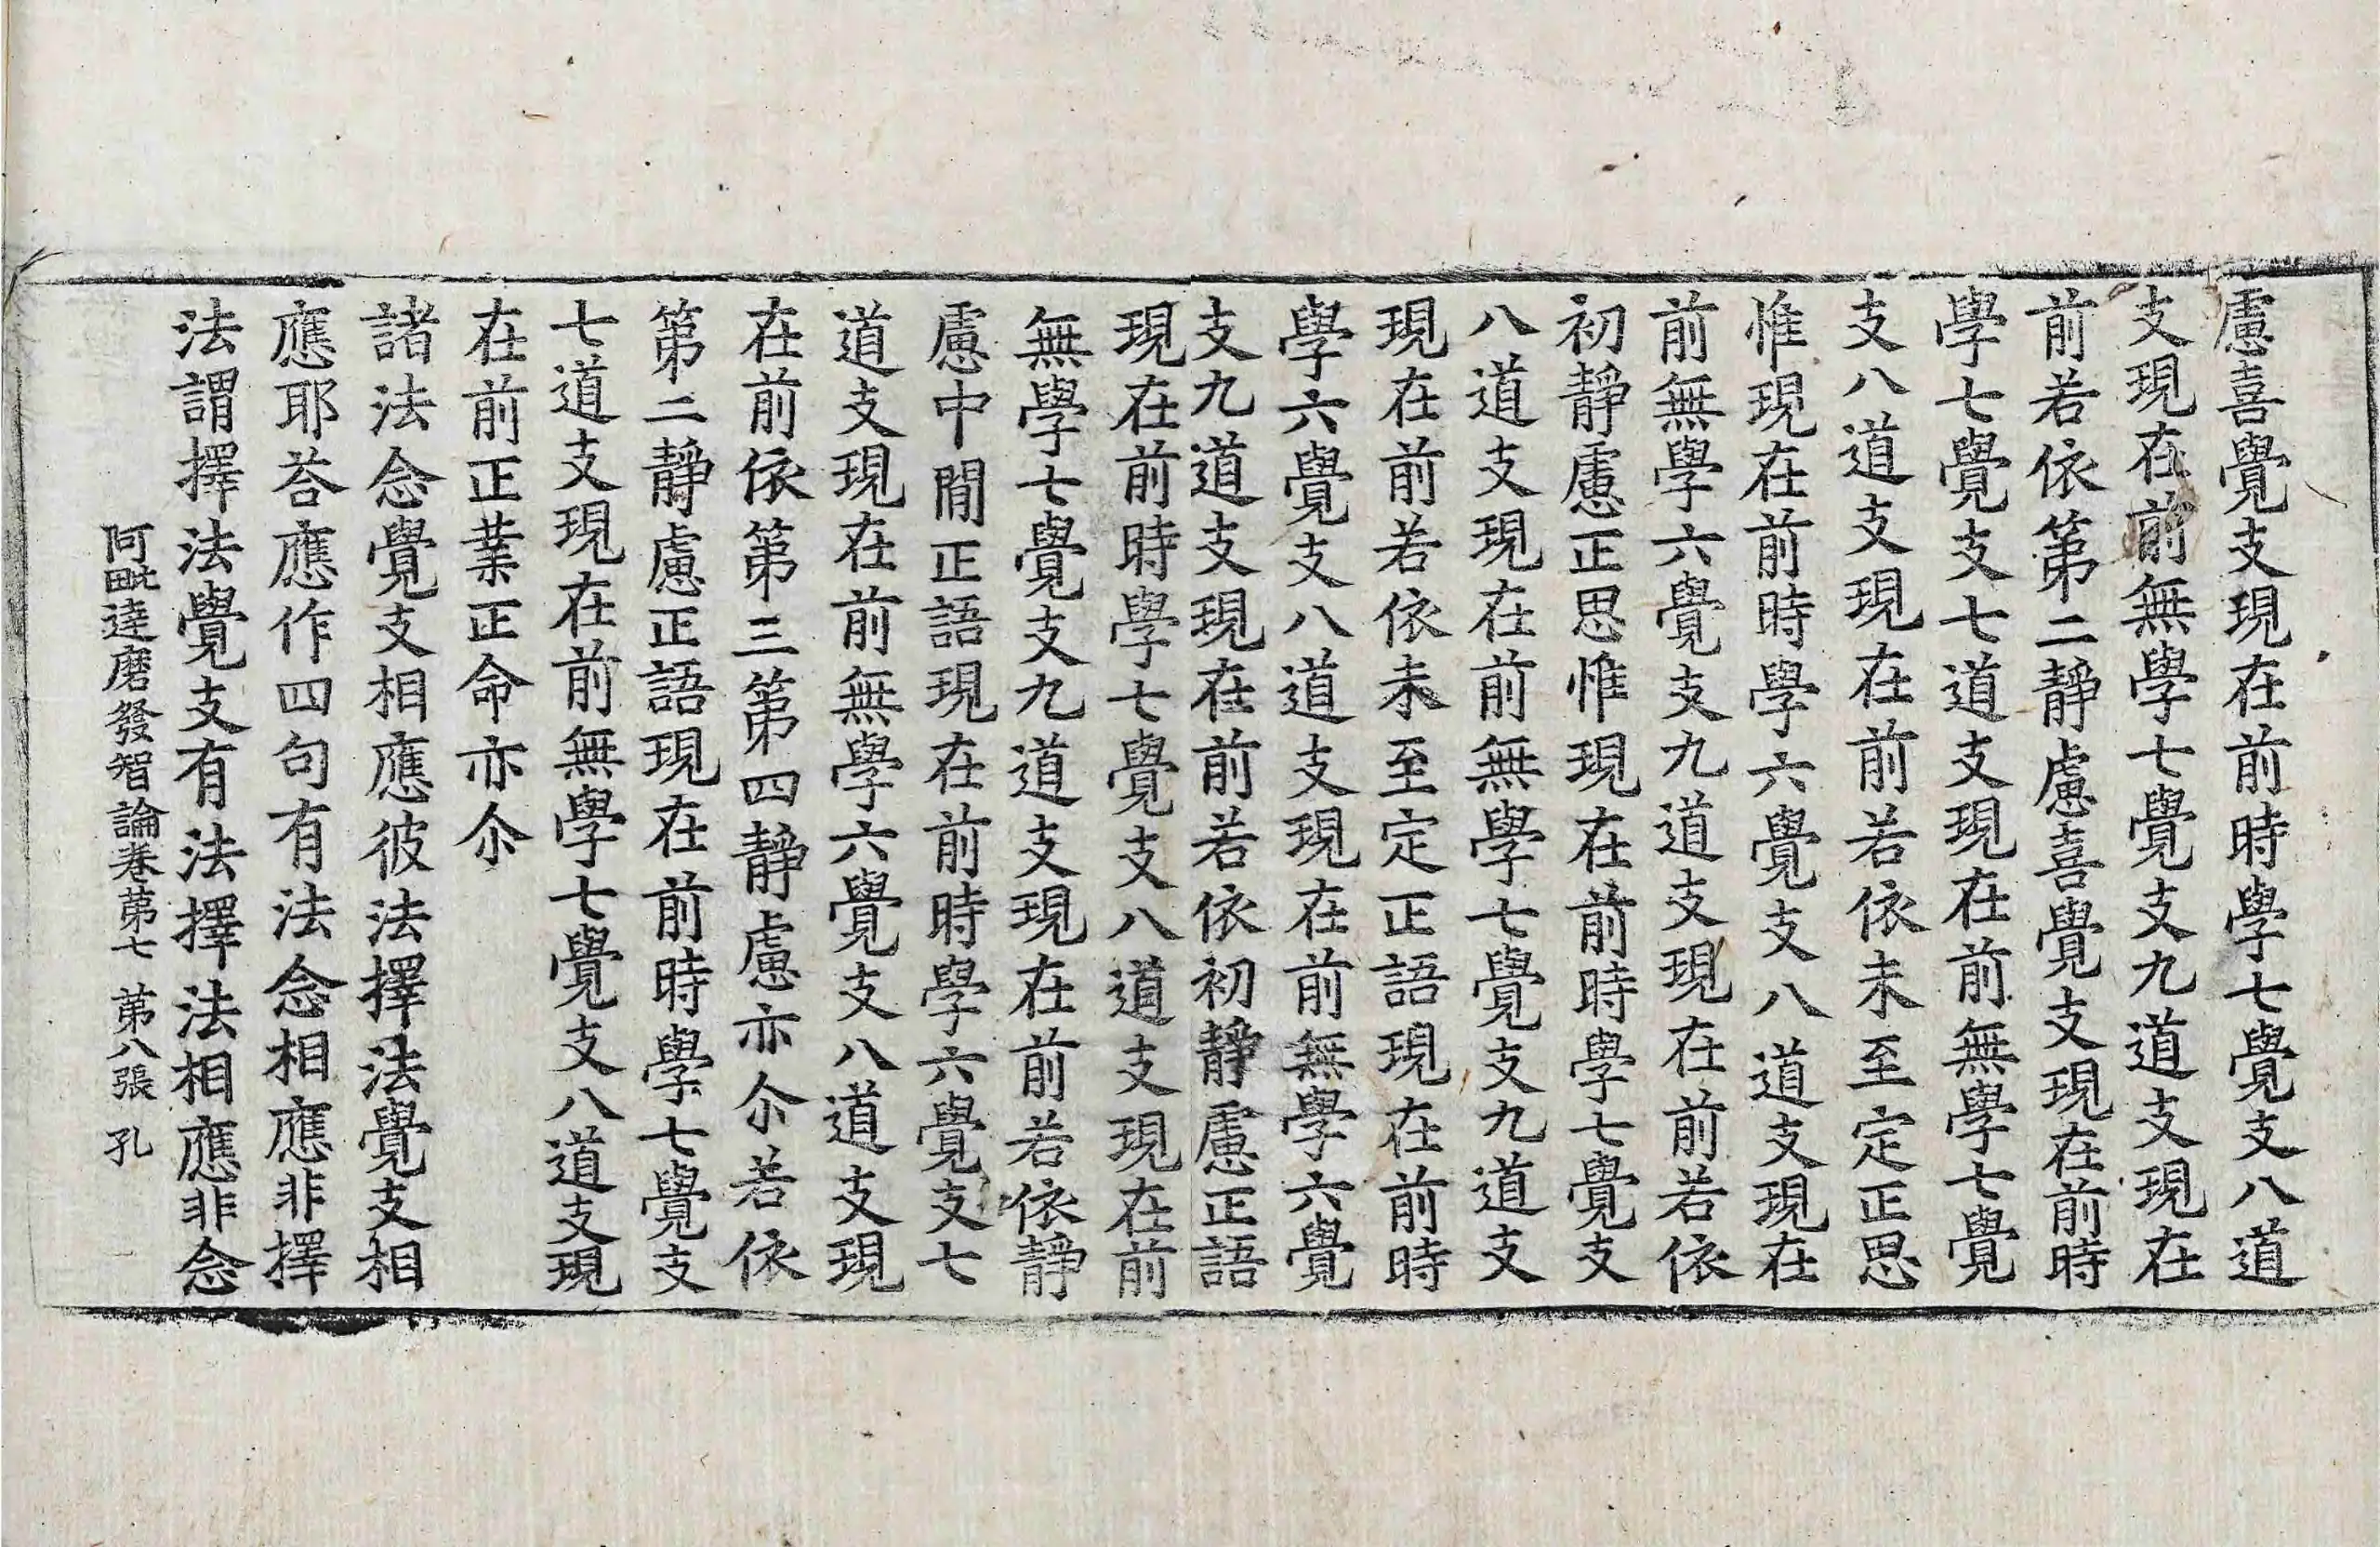 慮喜覺支現在前時學七覺支八道
支現在前無學七覺支九道支現在
前若依第二靜慮喜覺支現在前時
學七覺支七道支現在前無學七覺
支八道支現在前若依未至定正思
惟現在前時學六覺支八道支現在
前無學六覺支九道支現在前若依
初靜慮正思惟現在前時學七覺支
八道支現在前無學七覺支九道支
現在前若依未至定正語現在前時
學六覺支八道支現在前無學六覺
支九道支現在前若依初靜慮正語
現在前時學七覺支八道支現在前
無學七覺支九道支現在前若依靜
慮中閒正語現在前時學六覺支七
道支現在前無學六覺支八道支現
在前依第三第四靜慮亦尒若依
第二靜慮正語現在前時學七覺支
七道支現在前無學七覺支八道支現
在前正業正命亦尒
諸法念覺支相應彼法擇法覺支相
應耶荅應作四句有法念相應非擇
法謂擇法覺支有法擇法相應非念
阿毗達磨發智論卷第七 第八張 孔